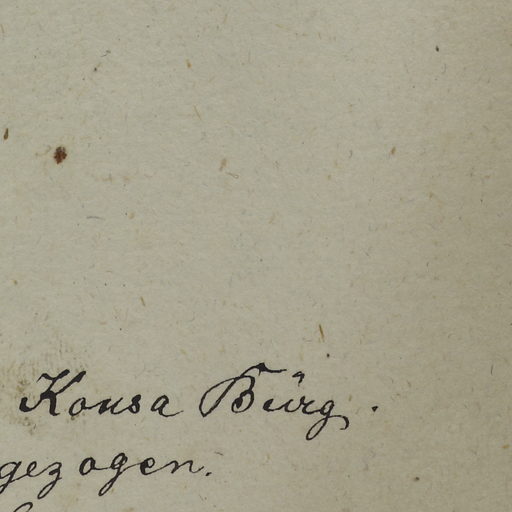 Konsa Bürg.
gezogen.